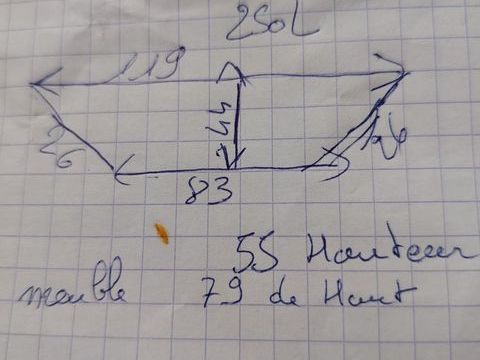 250L
119
44
26
26
83
55 Hauteur
meuble 79 de Haut